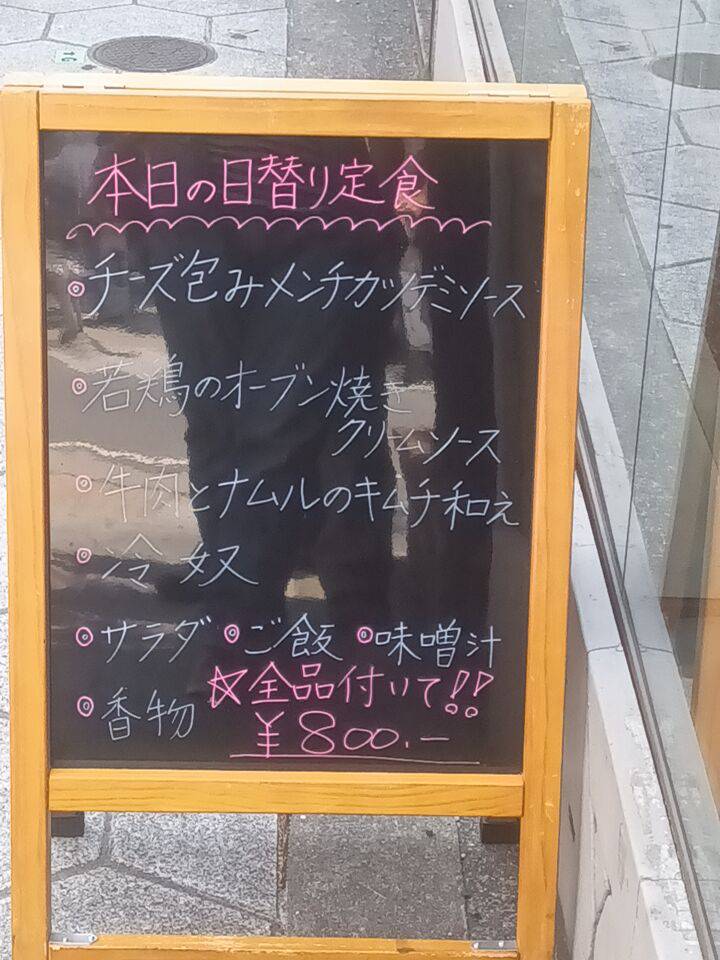 本日の日替り定食
◎チーズ包みメンチカツデミソース
◎若鶏のオーブン焼き
クリームソース
◎牛肉とナムルのキムチ和え
◎冷奴
◎サラダ ◎ご飯 ◎味噌汁
◎香物 ☆全品付いて!!
¥800.-